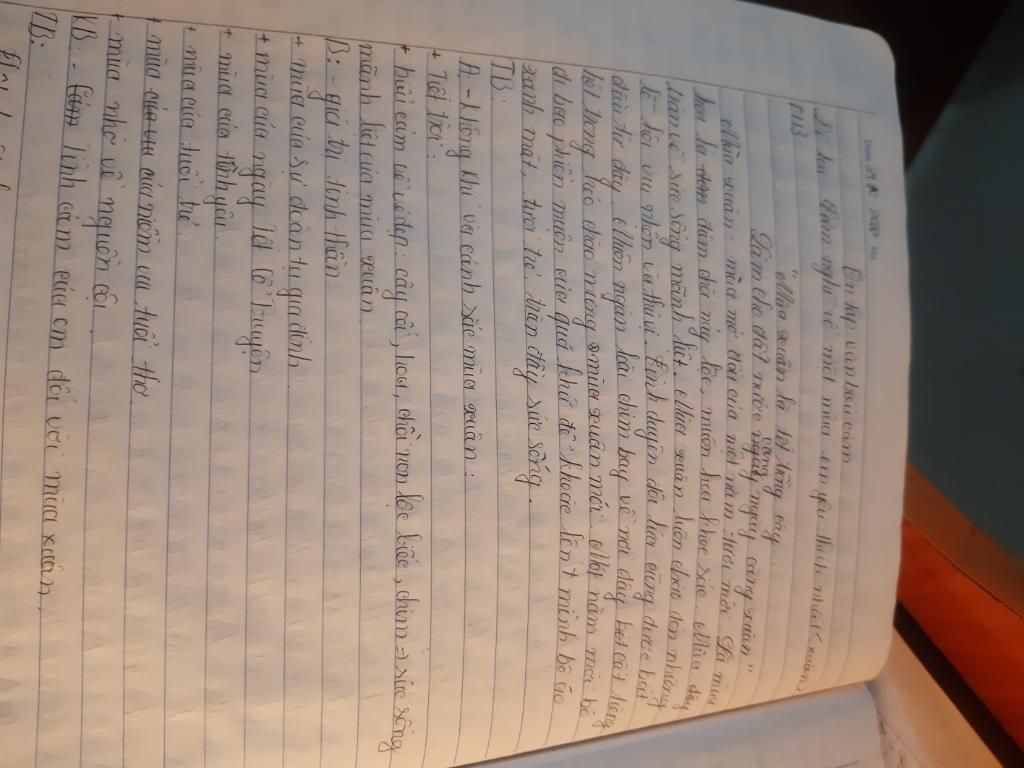 Ôn tập văn biểu cảm
Đề bài: Cảm nghĩ về một mùa em yêu thích nhất (xuân)
MB:
"Mùa xuân là tết trồng cây
Làm cho đất nước càng ngày càng xuân"
Mùa xuân - mùa mở đầu của một năm mới. Là mùa
hoa lá đâm chồi nảy lộc, muôn hoa khoe sắc. Mùa đầy
tràn về sức sống mãnh liệt. Mùa xuân luôn đem đến những
và thú vị. được bắt
đầu từ đây. Muôn ngàn loài chim bay về nơi đây hót cất tiếng
hót trong trẻo chào mừng mùa xuân mới. Một năm mới bỏ
đi bao phiền muộn của quá khứ để khoác lên mình bộ áo
xanh mát, tươi trẻ tràn đầy sức sống.
TB:
A - Không khí và cảnh sắc mùa xuân:
+ Tiết trời:
+ biểu cảm về vẻ đẹp cây cối, hoa, chồi non lộc biếc, chim => sức sống
mãnh liệt của mùa xuân
B: - giá trị tinh thần:
+ mùa của sự đoàn tụ gia đình.
+ mùa của ngày lễ cổ truyền
+ mùa của tình yêu.
+ mùa của tuổi trẻ
+ mùa của niềm vui tuổi thơ
+ mùa nhớ về nguồn cội
KB - tình cảm của em đối với mùa xuân.